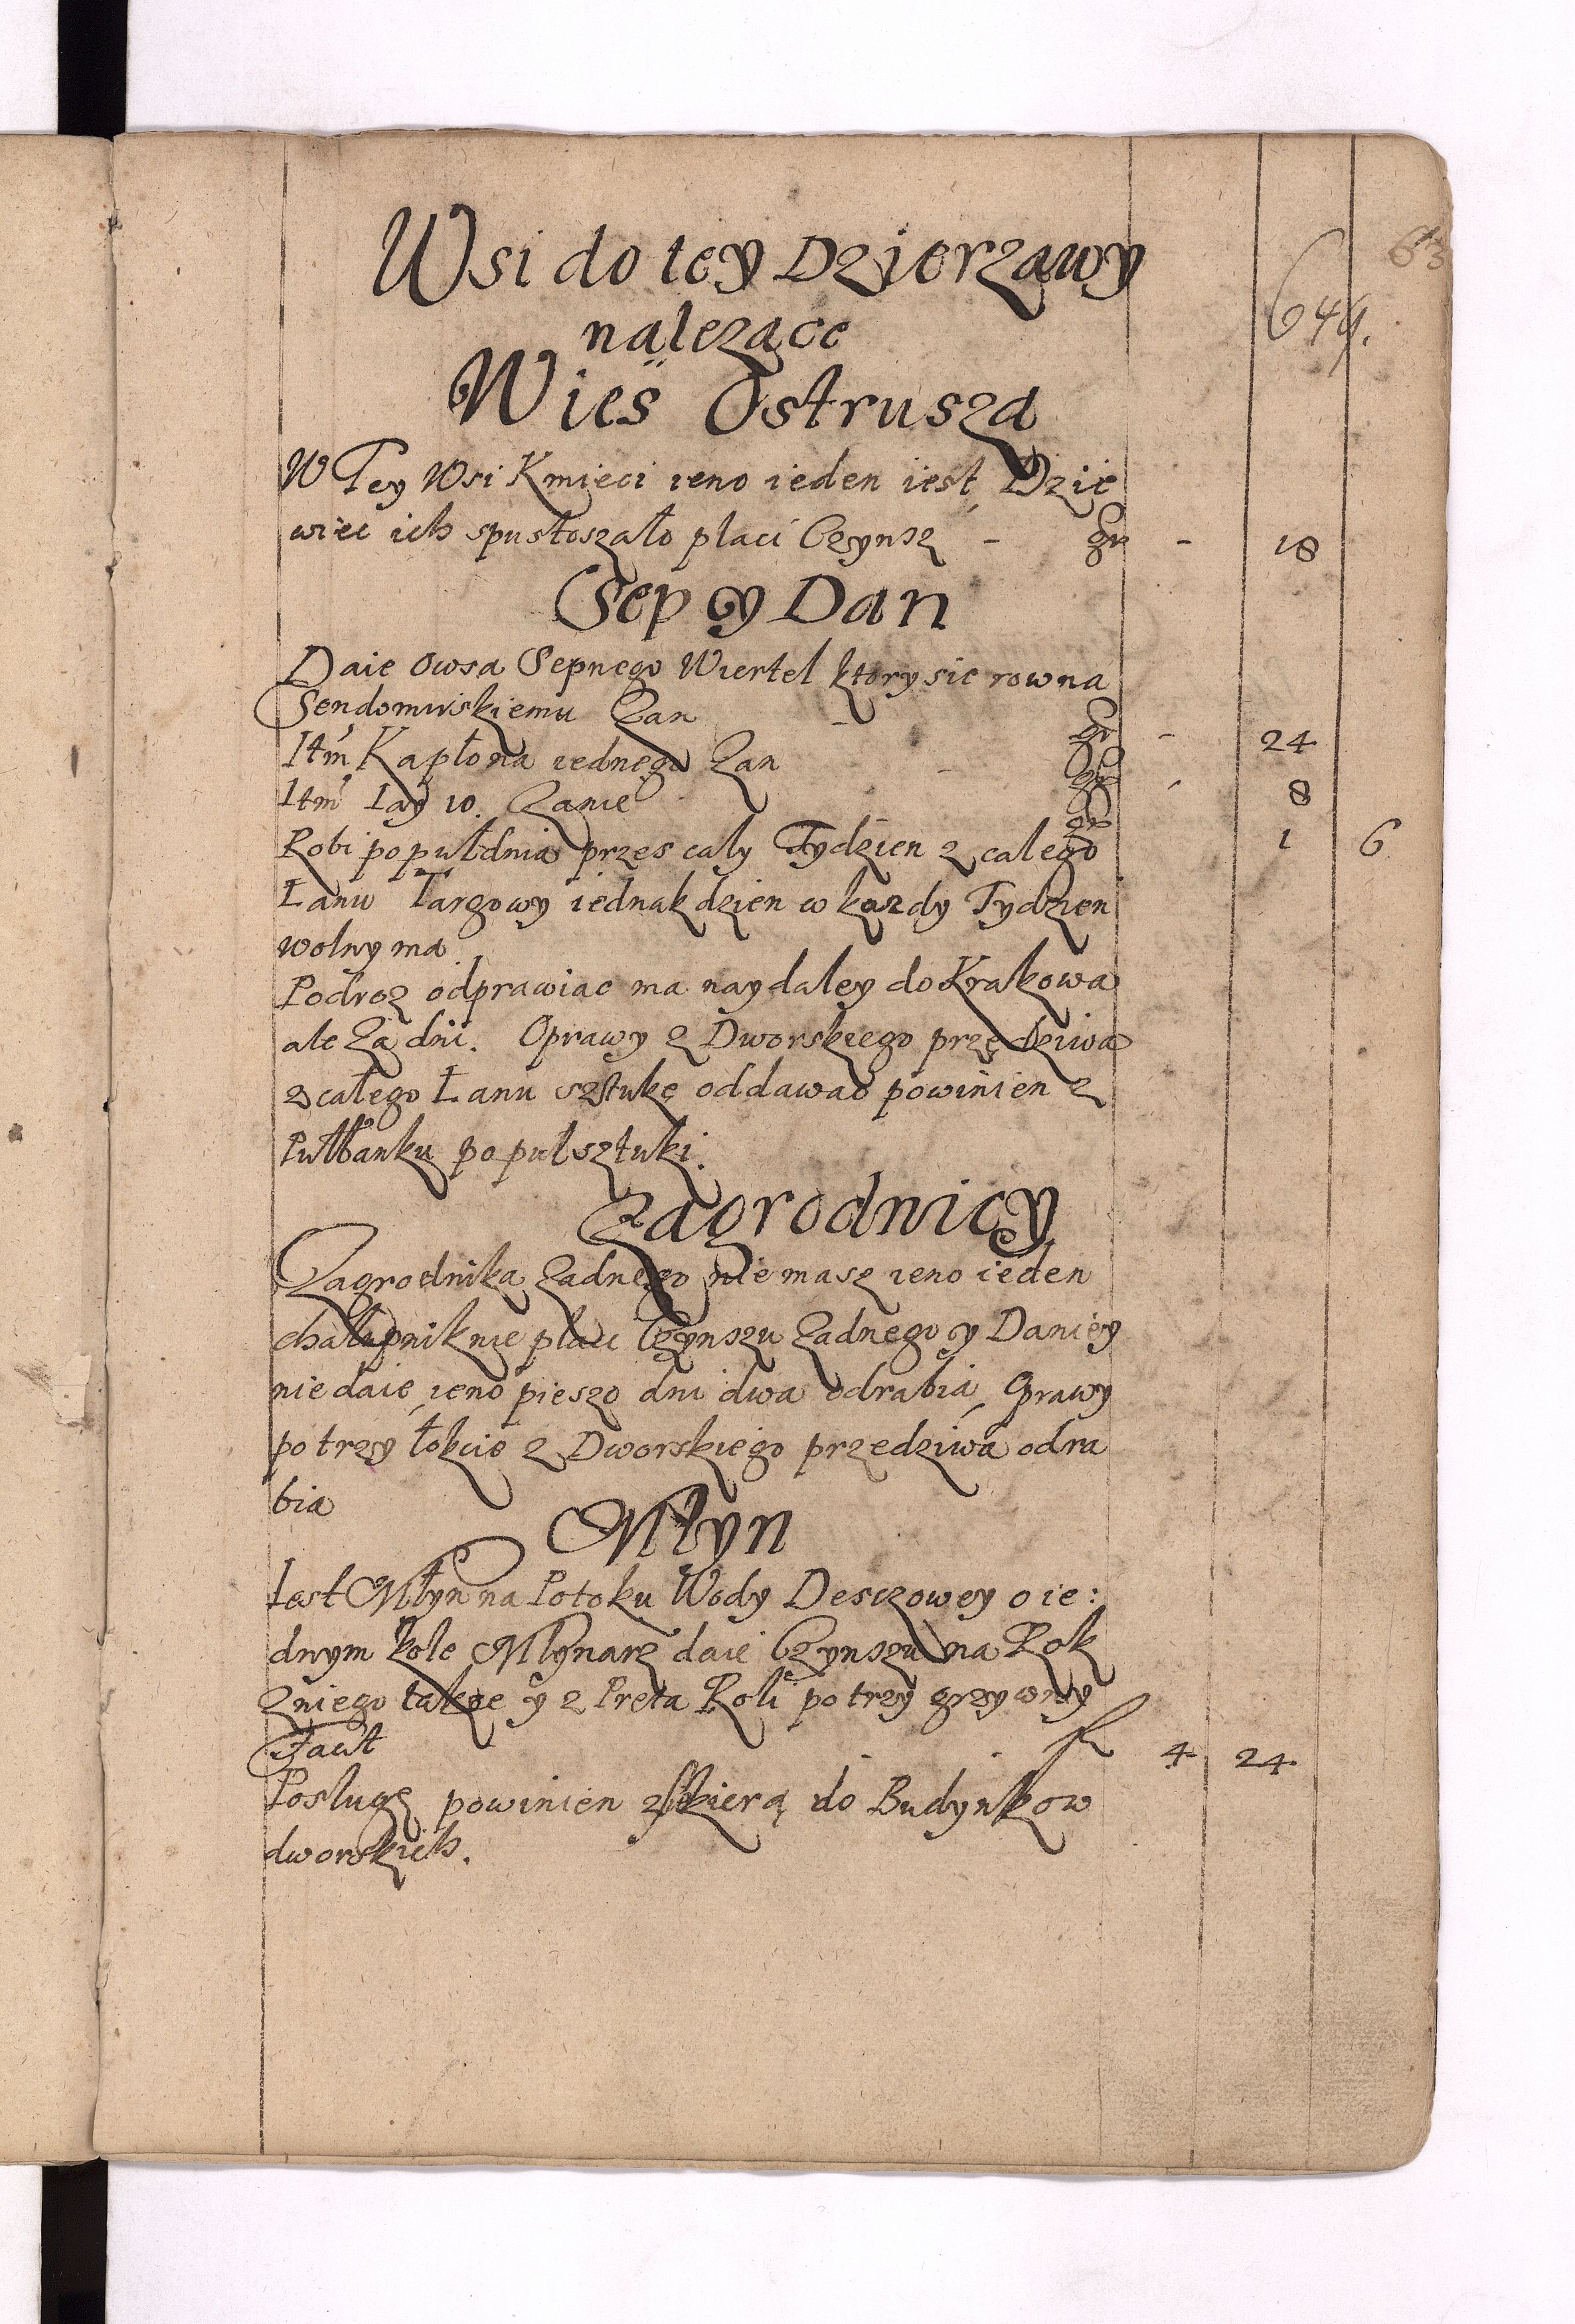 63
649.
Wsi do tey Dzierzawy
nalezące
Wies Ostrusza
W Tey Wsi Kmieci ieno ieden iest, Dzie
wiec ich spustoszało płaci Czynsz - gr - 18
Sep y Dan
Daie Owsa Sepnego Wiertel ktory sie rowna
Sendomirskiemu Zan - gr - 24
Itm Kapłona iednego Zan - gr - 8
Itm Iay 10. Zanie gr 1 6
Robi popułdnia przes cały Tydzien z calego
Łanu Targowy iednak dzien w kazdy Tydzien
wolny ma
Podroz odprawiac ma naydaley do Krakowa
ale Za dni. Oprawy z Dworskiego przędziwa
z całego Łanu sztukę oddawac powinien z
Pułłanku po pułsztuki.
Zagrodnicy
Zagrodnika Zadnego nie masz ieno ieden
chałupnik nie płaci Czynszu Zadnego y Daniey
nie daie, ieno pieszo dni dwa odrabia, Oprawy
po trzy łokcie z Dworskiego przedziwa odra
bia
Młyn
Iest Młyn na Potoku Wody Desczowey o ie:
dnym kole Młynarz daie Czynszu na Rok
Zniego takze y z Pręta Roli po trzy grzywny
Facit - - fl 4 24
Posługę powinien z siekierą do Budynkow
dworskich.